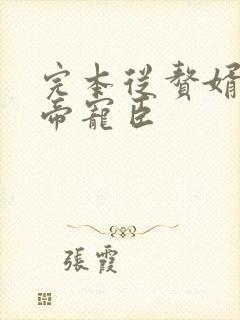 完本從贅婿
帝寵臣
張霞